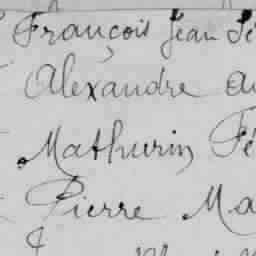 François Jean
Alexandre
Mathurin
Pierre Ma